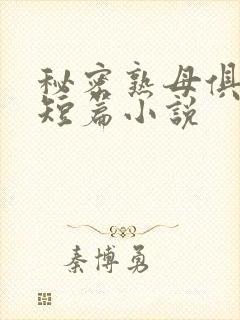 秘密熟母俱
短篇小説
秦博勇